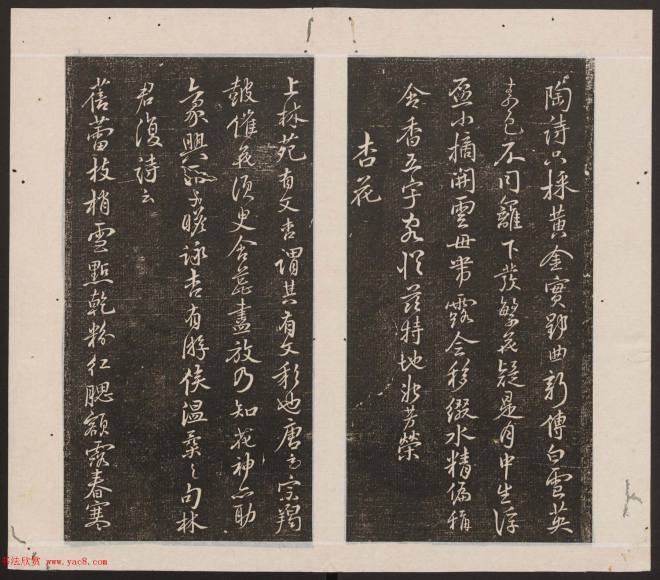 陶詩只採黃金實郢曲新傳白雪英
素色不同籬下發繁花疑是月中生浮
盃小摘開雲母帶露全移綴水精偏稱
含香五字客從茲特地芳榮
杏花
上林苑有文杏謂其有文彩也唐玄宗羯
鼓催花須臾含蕊盡放乃知花神亦助
興子瞻詠杏有游溫之句林
君復詩云
蓓蕾枝梢雪點乾粉紅腮額露春寒
书法欣赏 www.yac8.com